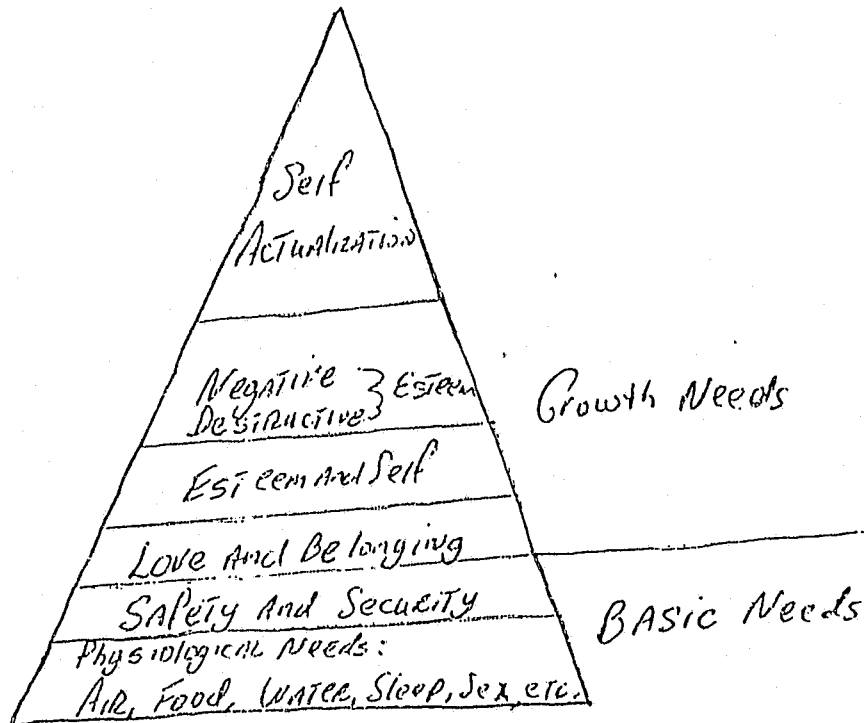 Self
Actualization
Negative } Esteem
Destructive
Growth Needs
Esteem And Self
Love And Belonging
Safety And Security
Basic Needs
Physiological Needs:
Air, Food, Water, Sleep, Sex, etc.